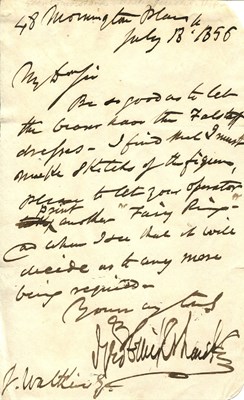 48 Mornington Place
July 13th 1856
My Dear Sir
Be so good as to let
the bearer have the Falstaff
dresses - I find that I must
make sketches of the figures,
please to let your operator
print another "Fairy Ring" -
as when I see that it will
decide as to any more
being required -
Yours
J. Watkins